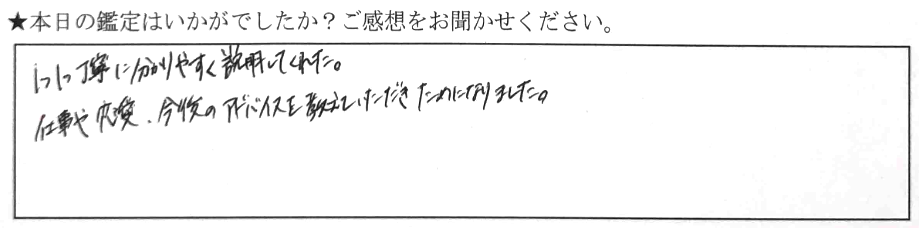 ★本日の鑑定はいかがでしたか？ご感想をお聞かせください。
1つ1つ丁寧に分かりやすく説明してくれた。
仕事や恋愛、今後のアドバイスを教えていただきためになりました。